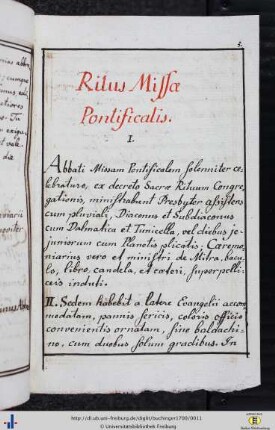 5.
Ritus Missæ
Pontificalis.
I.
Abbati Missam Pontificalem solenniter ce-
lebraturo, ex decreto Sacro Rituum Congre-
gationis, ministrabunt Presbyter assistens
cum pluviali, Diaconus et Subdiaconus
cum Dalmatica et Tunicella, vel diebus je-
juniorum cum Planetis plicatis; Cæremo-
niarius vero et ministri de Mitra, bacu-
lo, libro, candela, et cæteri, superpelli-
ceis induti.
II. Sedem habebit a latere Evangelii accom-
modatam, pannis sericis, coloris officio
convenientis ornatam, sine baldachi-
no, cum duobus solum gradibus. In
http://dl.ub.uni-freiburg.de/diglit/buchinger1700/0011
© Universitätsbibliothek Freiburg